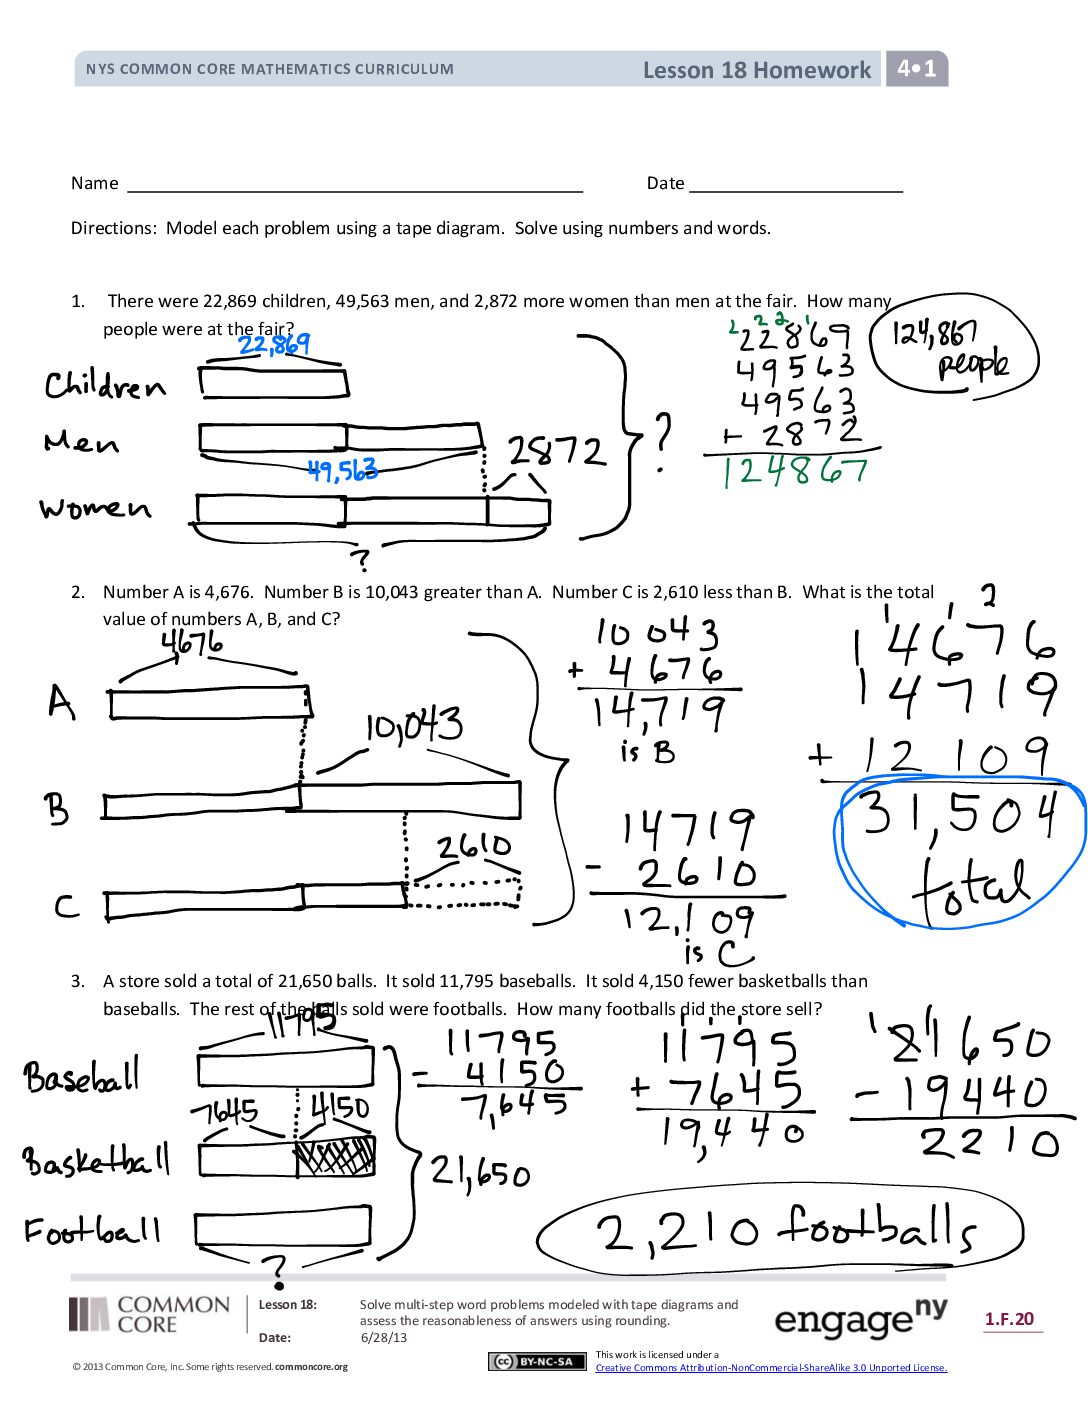 NYS COMMON CORE MATHEMATICS CURRICULUM Lesson 18 Homework 4•1
Name Date
Directions: Model each problem using a tape diagram. Solve using numbers and words.
1. There were 22,869 children, 49,563 men, and 2,872 more women than men at the fair. How many
people were at the fair?
22,869
Children
Men
49,563
2872
Women
?
?
1 2 2 1
22869
49563
49563
+ 2872
124867
124,867
people
2. Number A is 4,676. Number B is 10,043 greater than A. Number C is 2,610 less than B. What is the total
value of numbers A, B, and C?
4676
A
10,043
B
2610
C
10 043
+ 4 676
14,719
is B
14719
- 2610
12,109
is C
1 1 2
14676
14719
+ 12 109
31,504
total
3. A store sold a total of 21,650 balls. It sold 11,795 baseballs. It sold 4,150 fewer basketballs than
baseballs. The rest of the balls sold were footballs. How many footballs did the store sell?
11795
Baseball
7645 4150
Basketball
Football
?
21,650
11795
- 4150
7,645
1 1 1
11795
+ 7645
19,440
1 1
21650
- 19440
2210
2,210 footballs
COMMON
CORE
Lesson 18: Solve multi-step word problems modeled with tape diagrams and
assess the reasonableness of answers using rounding.
Date: 6/28/13
engage ny
1.F.20
© 2013 Common Core, Inc. Some rights reserved. commoncore.org
cc BY-NC-SA
This work is licensed under a
Creative Commons Attribution-NonCommercial-ShareAlike 3.0 Unported License.